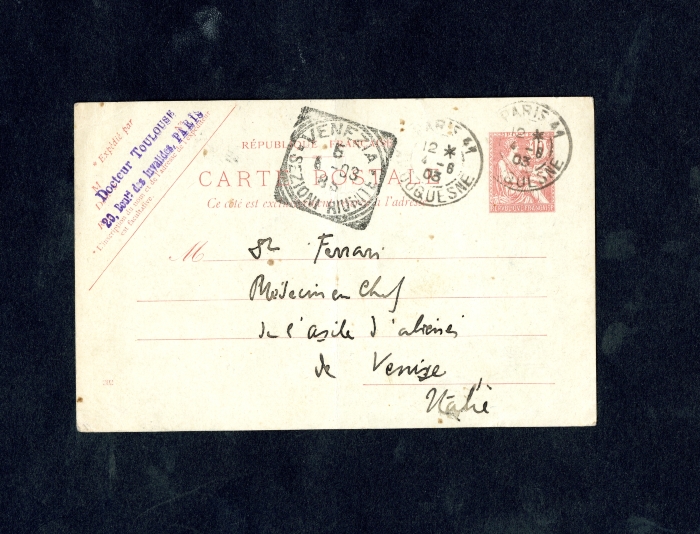 * Expédié par
Docteur TOULOUSE
20, Boulᵈ des Invalides, PARIS
est facultative.
RÉPUBLIQUE FRANÇAISE
CARTE POSTALE
Ce côté est exclusivement réservé à l'adresse
VENEZIA
6
8-03
SEZIONI RIUNITE
PARIS 41
12 *
4-8
03
DUQUESNE
PARIS 41
12 *
4-8
03
DUQUESNE
M
Dr Ferrari
Médecin en Chef
de l'asile d'aliénés
de Venise
Italie
302